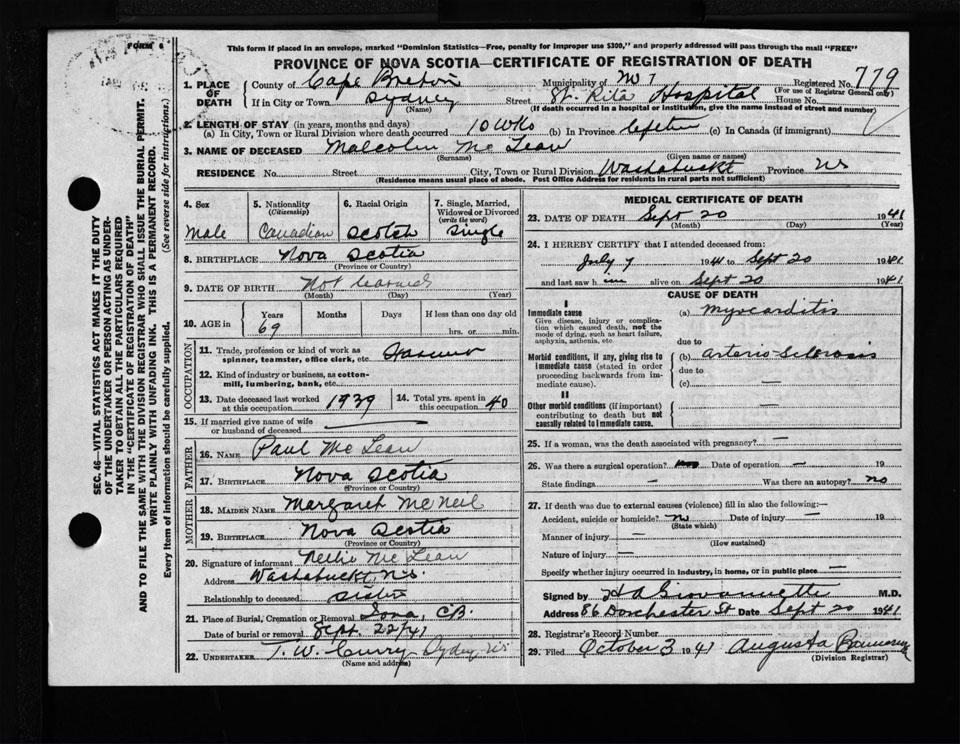 FORM 6
This form if placed in an envelope, marked "Dominion Statistics—Free, penalty for improper use $300," and properly addressed will pass through the mail "FREE"
PROVINCE OF NOVA SCOTIA—CERTIFICATE OF REGISTRATION OF DEATH
1. PLACE OF DEATH
County of Cape Breton Municipality of No 7 Registered No. 779
(For use of Registrar General only)
If in City or Town Sydney Street St. Rita Hospital House No.
(Name) (If death occurred in a hospital or institution, give the name instead of street and number)
2. LENGTH OF STAY (in years, months and days)
(a) In City, Town or Rural Division where death occurred 10 wks (b) In Province lifetime (c) In Canada (if immigrant)
3. NAME OF DECEASED Malcolm McLean
(Surname) (Given name or names)
RESIDENCE No. Street City, Town or Rural Division Washabuckt Province NS
(Residence means usual place of abode. Post Office Address for residents in rural parts not sufficient)
4. Sex Male
5. Nationality (Citizenship) Canadian
6. Racial Origin Scotch
7. Single, Married, Widowed or Divorced (write the word) Single
8. BIRTHPLACE Nova Scotia
(Province or Country)
9. DATE OF BIRTH Not learned
(Month) (Day) (Year)
10. AGE in Years 69 Months Days If less than one day old hrs. or min.
OCCUPATION
11. Trade, profession or kind of work as spinner, teamster, office clerk, etc. Farmer
12. Kind of industry or business, as cotton-mill, lumbering, bank, etc.
13. Date deceased last worked at this occupation 1939
14. Total yrs. spent in this occupation 40
15. If married give name of wife or husband of deceased —
FATHER
16. NAME Paul McLean
17. BIRTHPLACE Nova Scotia
(Province or Country)
MOTHER
18. MAIDEN NAME Margaret McNeil
19. BIRTHPLACE Nova Scotia
(Province or Country)
20. Signature of informant Nellie McLean
Address Washabuckt, N.S.
Relationship to deceased Sister
21. Place of Burial, Cremation or Removal Iona, C.B.
Date of burial or removal Sept. 22/41
22. UNDERTAKER T. W. Curry Sydney, NS
(Name and address)
MEDICAL CERTIFICATE OF DEATH
23. DATE OF DEATH Sept 20 1941
(Month) (Day) (Year)
24. I HEREBY CERTIFY that I attended deceased from:
July 7 1941 to Sept 20 1941
and last saw him alive on Sept 20 1941
CAUSE OF DEATH
I
Immediate cause
Give disease, injury or complication which caused death, not the mode of dying, such as heart failure, asphyxia, asthenia, etc.
(a) Myocarditis
due to
Morbid conditions, if any, giving rise to immediate cause (stated in order proceeding backwards from immediate cause).
(b) Arterio Sclerosis
due to
(c) —
II
Other morbid conditions (if important) contributing to death but not causally related to immediate cause.
—
25. If a woman, was the death associated with pregnancy? —
26. Was there a surgical operation? no Date of operation — 19
State findings — Was there an autopsy? no
27. If death was due to external causes (violence) fill in also the following:—
Accident, suicide or homicide? no Date of injury — 19
(State which)
Manner of injury —
(How sustained)
Nature of injury —
Specify whether injury occurred in industry, in home, or in public place —
Signed by H A Giovannetti M.D.
Address 86 Dorchester St Date Sept 20 1941
28. Registrar's Record Number
29. Filed October 3 1941 Augusta
(Division Registrar)
SEC. 46—VITAL STATISTICS ACT MAKES IT THE DUTY
OF THE UNDERTAKER OR PERSON ACTING AS UNDER-
TAKER TO OBTAIN ALL THE PARTICULARS REQUIRED
IN THE "CERTIFICATE OF REGISTRATION OF DEATH"
AND TO FILE THE SAME WITH THE DIVISION REGISTRAR WHO SHALL ISSUE THE BURIAL PERMIT.
WRITE PLAINLY WITH UNFADING INK. THIS IS A PERMANENT RECORD.
Every item of information should be carefully supplied. (See reverse side for instructions.)